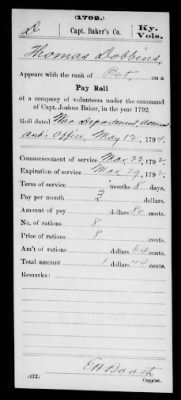 (1792.)
D Capt. Baker's Co. Ky. Vols.
Thomas Dobbins,
Appears with the rank of Pvt. on a
Pay Roll
of a company of volunteers under the command
of Capt. Joshua Baker, in the year 1792.
Roll dated War Department, Account
ant's Office, May 12, 1794.
Commencement of service Mar 22, 1792.
Expiration of service Mar 29, 1792.
Term of service months 8 days.
Pay per month 3 dollars
Amount of pay dollars 80 cents.
No. of rations 8
Price of rations 8 cents.
Am't of rations dollars 64 cents.
Total amount 1 dollars 44 cents.
Remarks:
E A Booth
(412) Copyist.